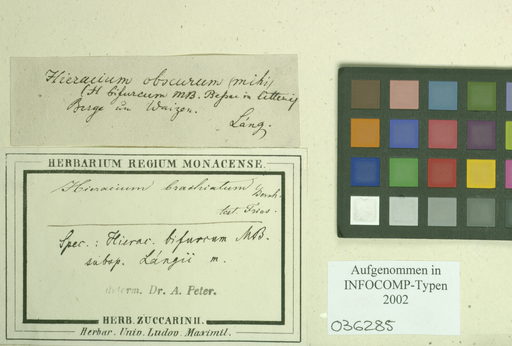 Hieracium obscurum (mihi)
(H bifurcum MB. Besser in litteris)
Berge um Waizen.
Láng.
HERBARIUM REGIUM MONACENSE.
Hieracium brachiatum Bernh.
test. Fries.
Spec.: Hierac. bifurcum MB.
subsp. Lángii m.
determ. Dr. A. Peter.
HERB. ZUCCARINII.
Herbar. Univ. Ludov. Maximil.
Aufgenommen in
INFOCOMP-Typen
2002
036285